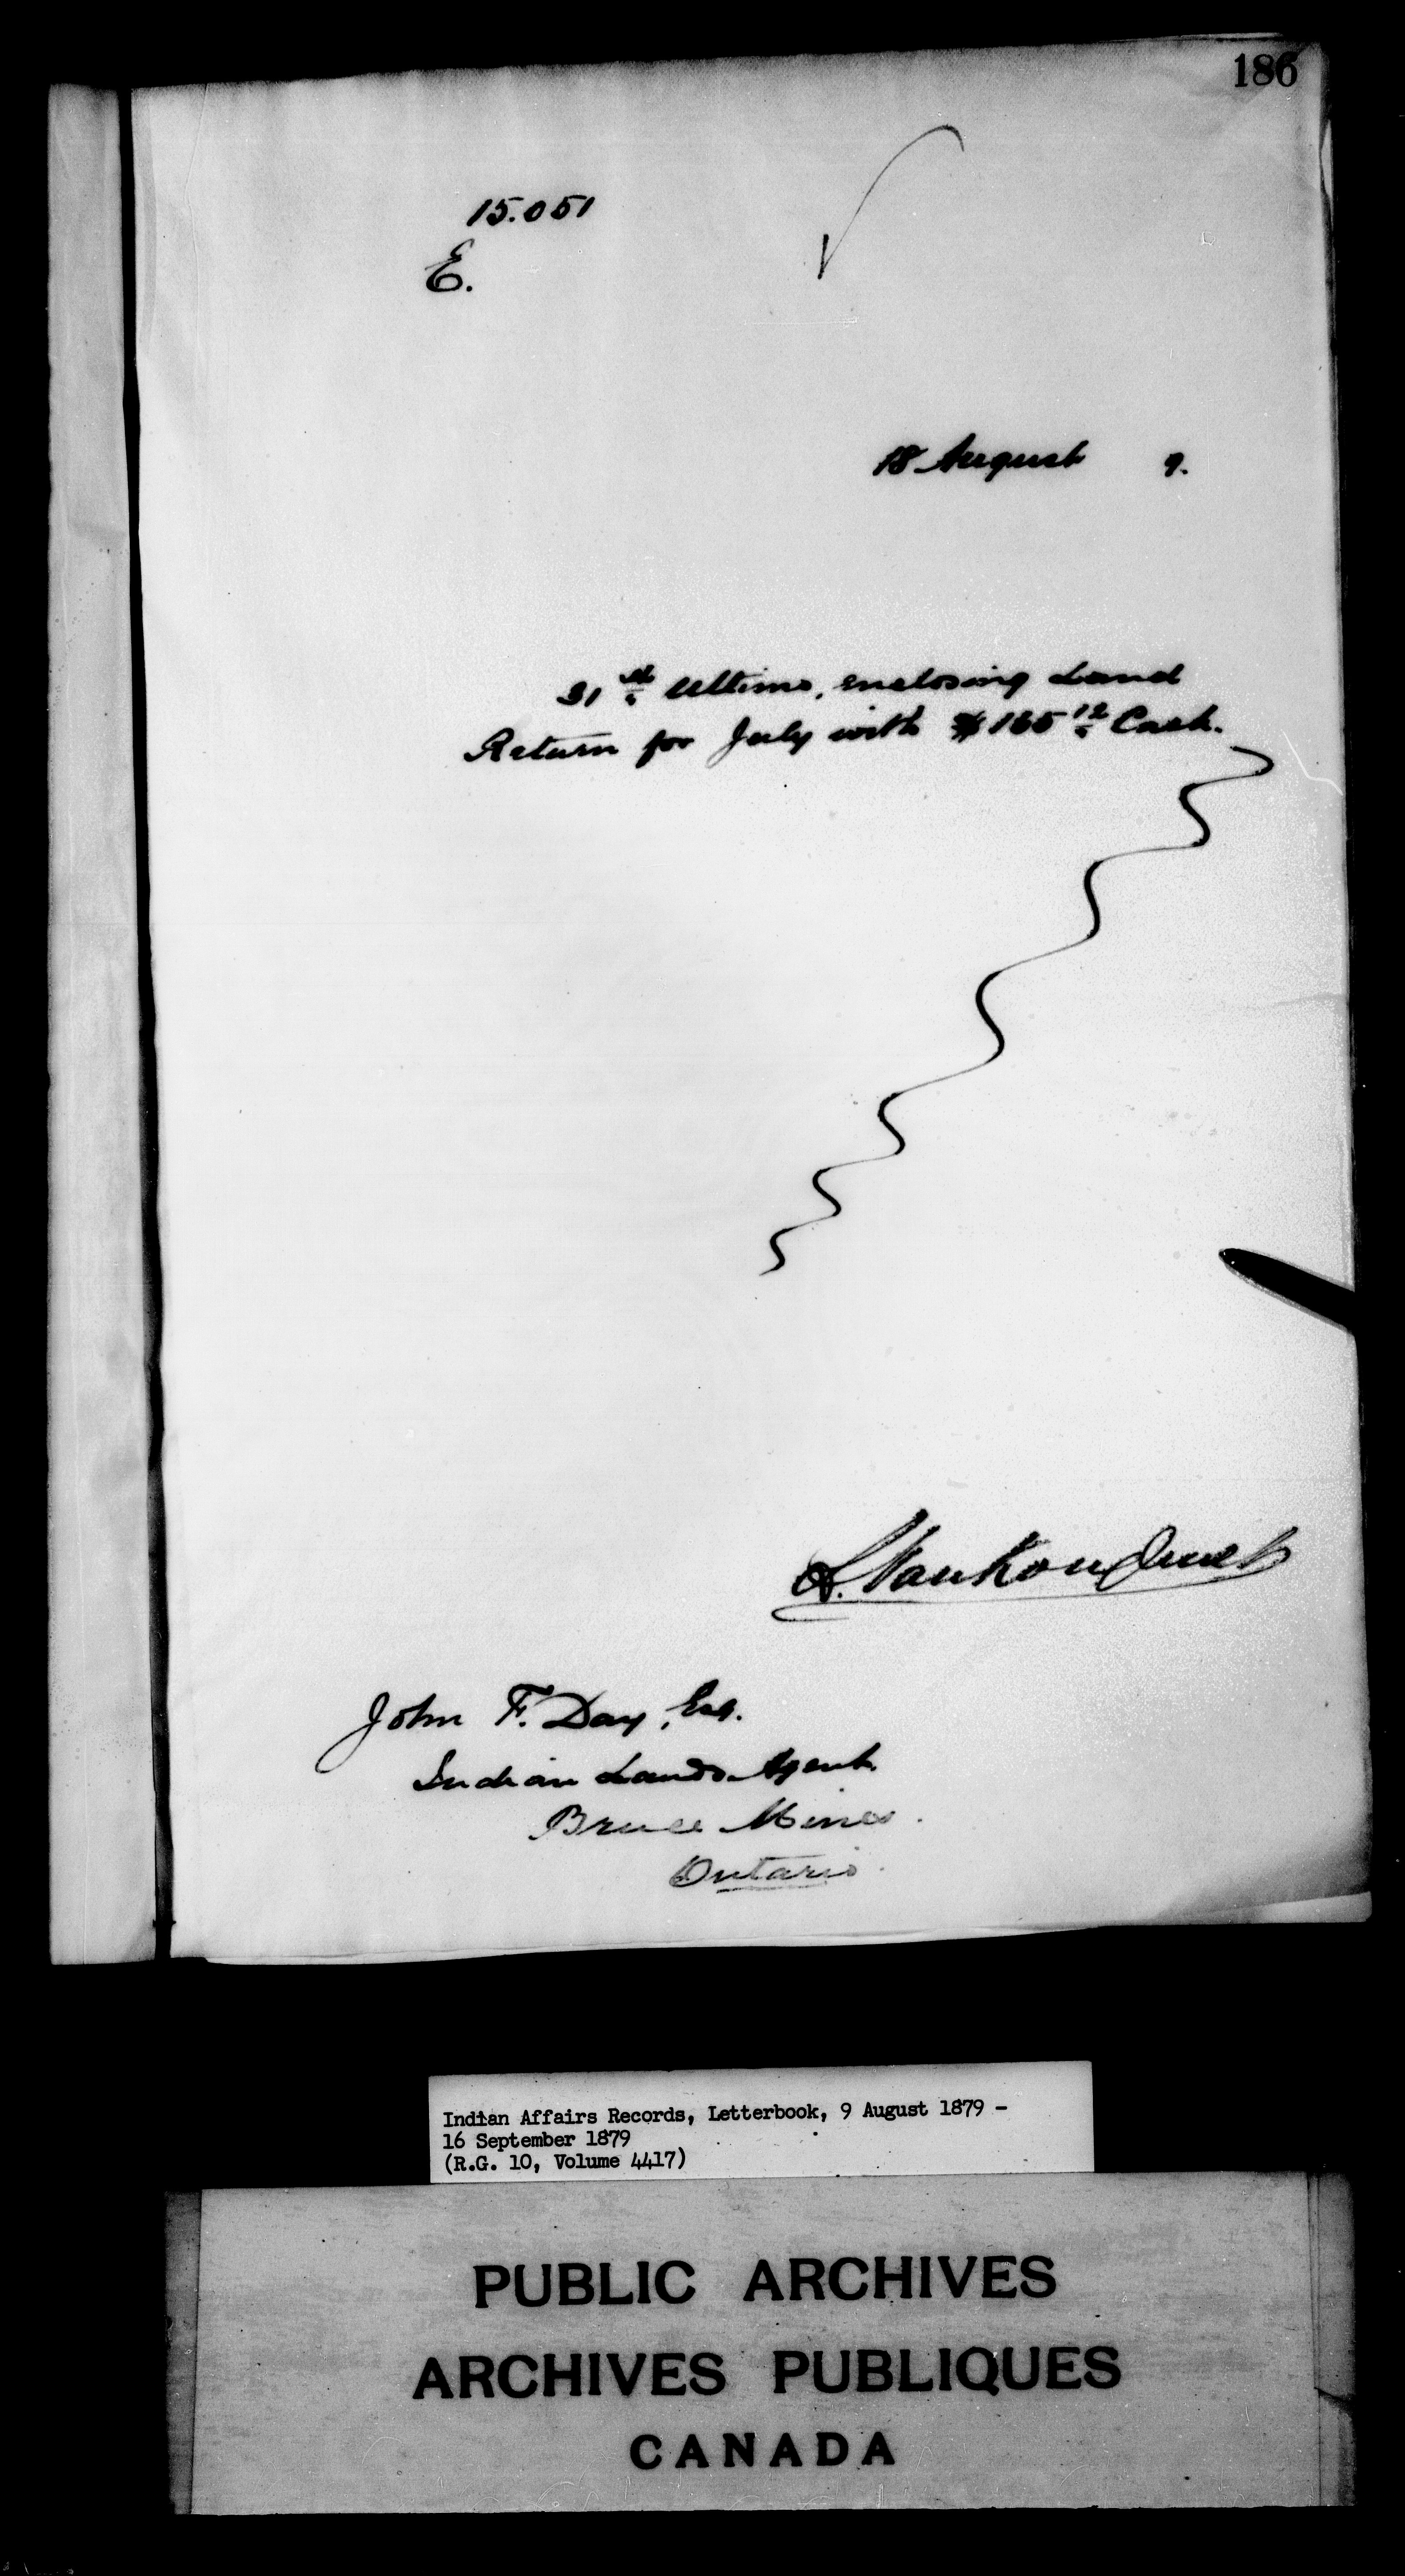 186
15.051
E.
18 August 9.
31st Ultimo, enclosing Land
Return for July with $165 12 Cash.
L. VanKoughnet
John F. Day, Esq.
Indian Lands Agent.
Bruce Mines.
Ontario.
Indian Affairs Records, Letterbook, 9 August 1879 -
16 September 1879
(R.G. 10, Volume 4417)
PUBLIC ARCHIVES
ARCHIVES PUBLIQUES
CANADA